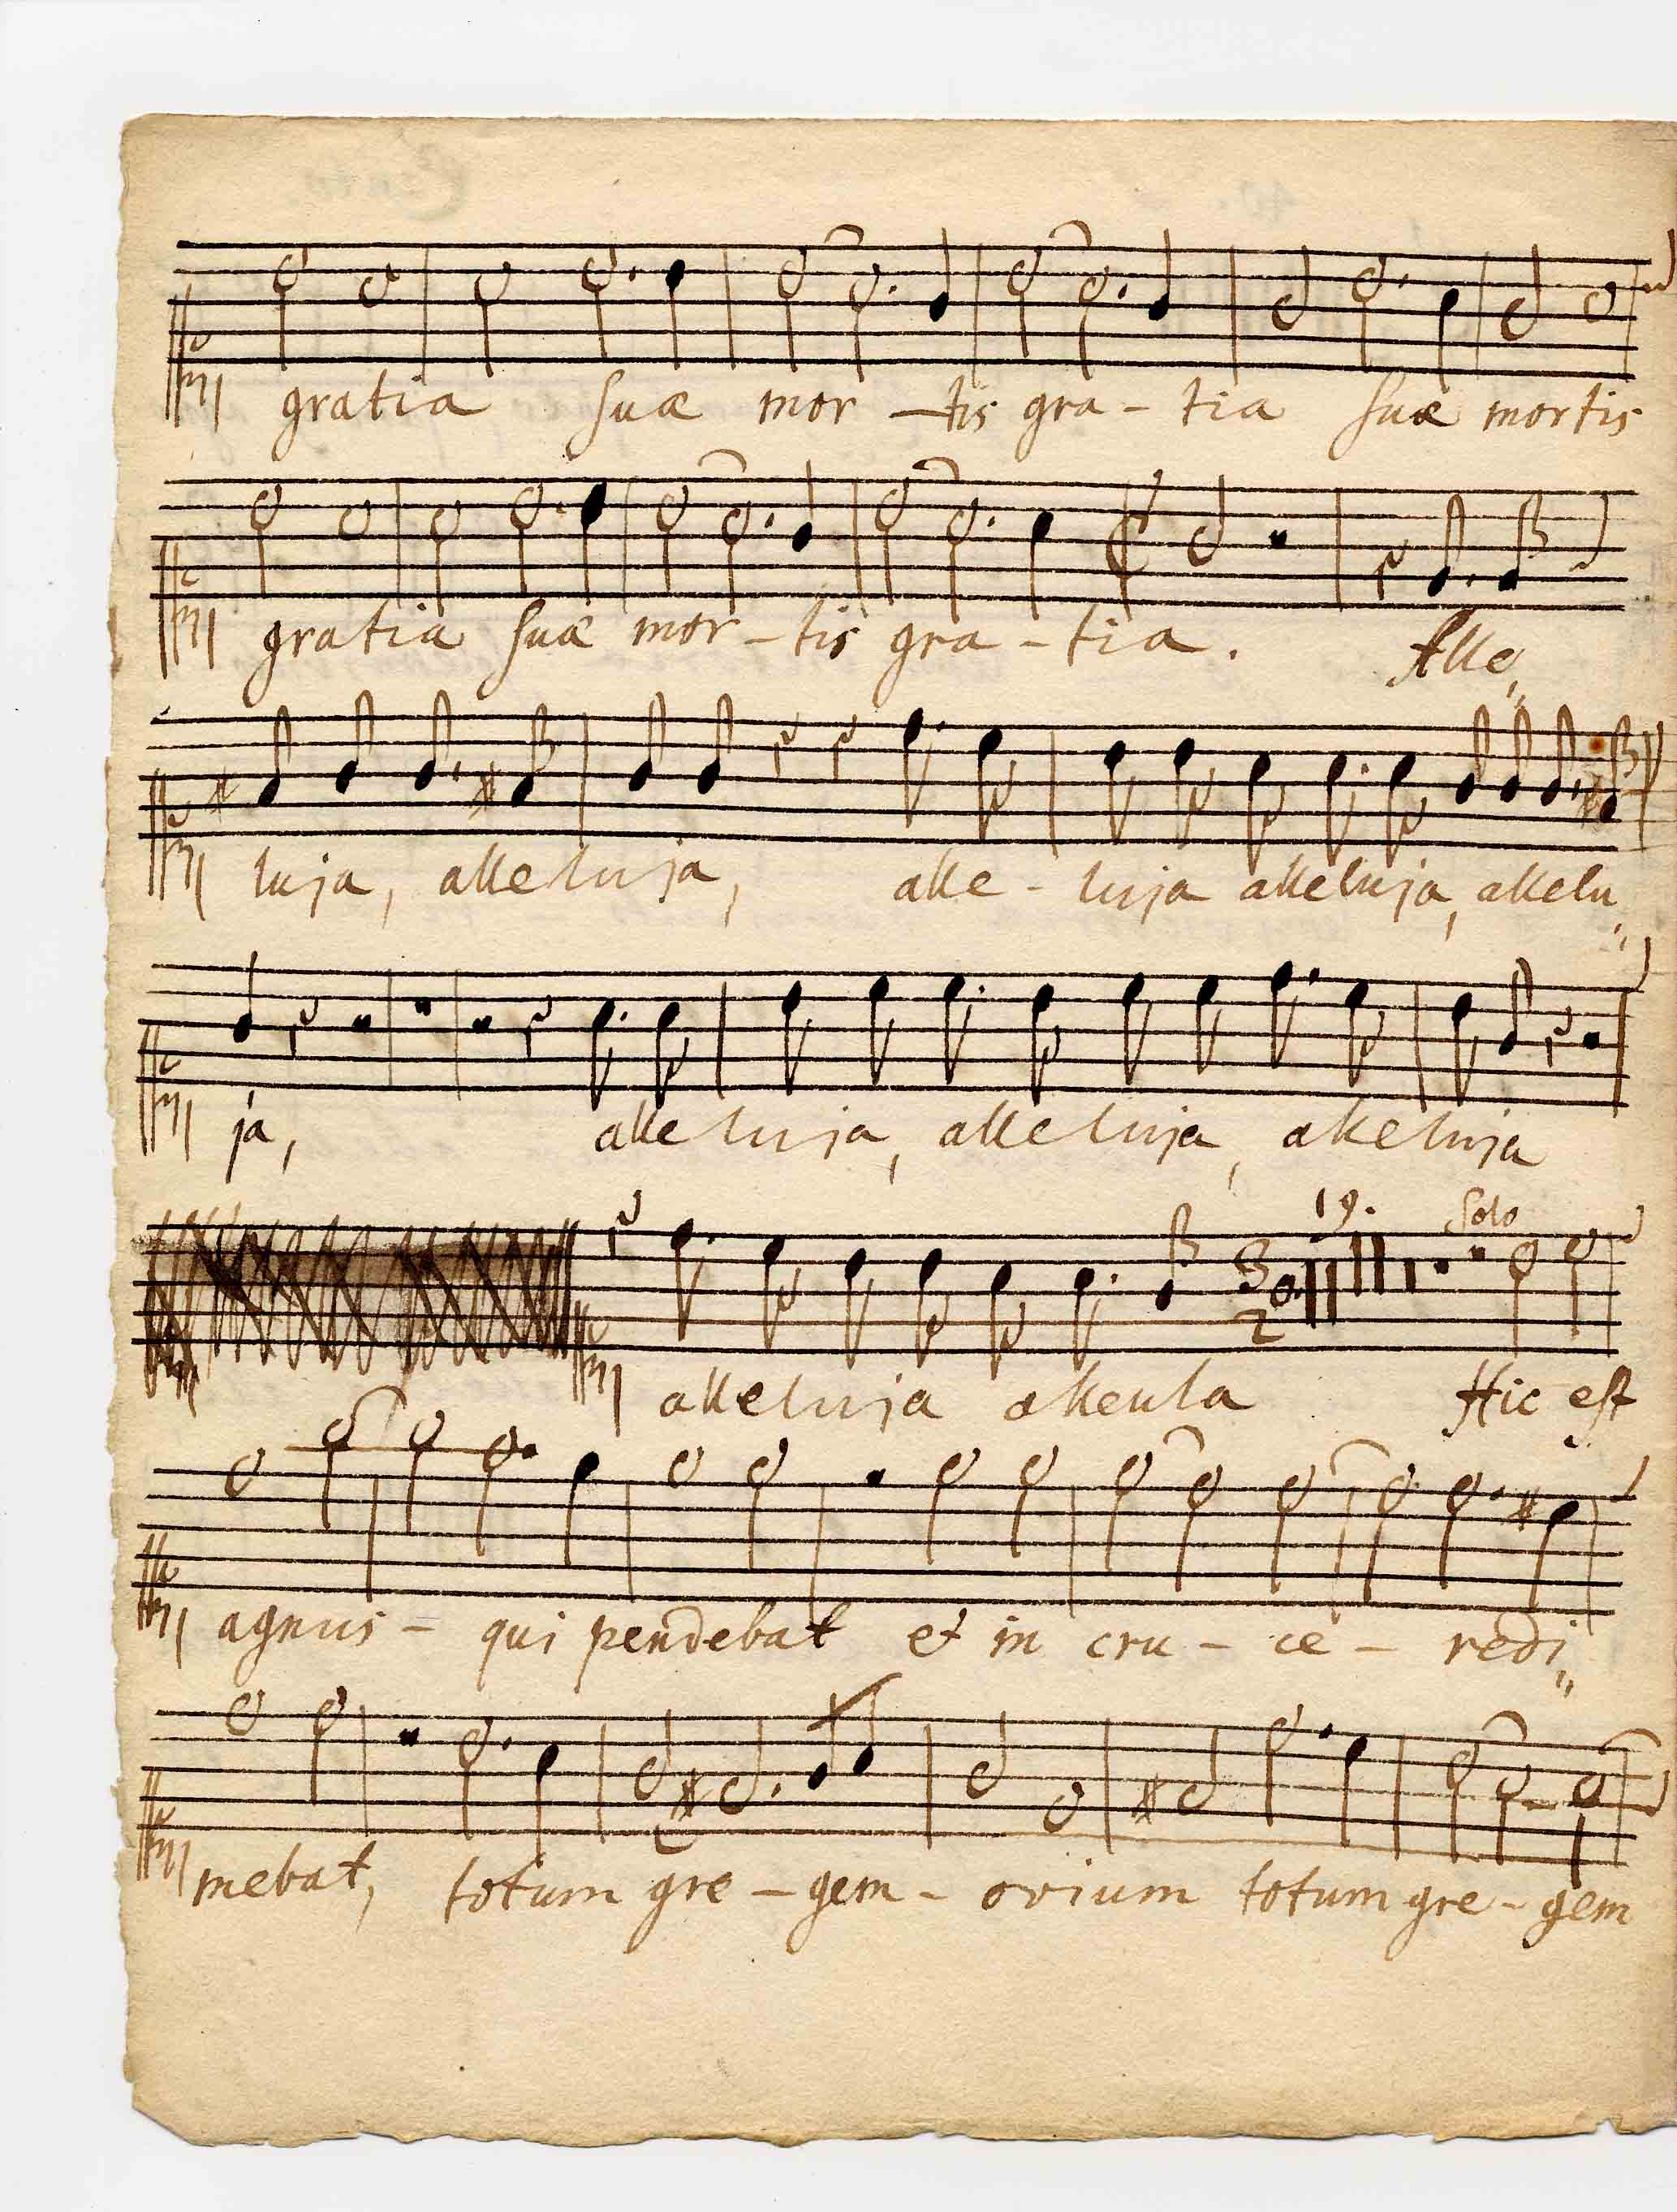 gratia suæ mor - tis gra - tia suæ mortis
gratia suæ mor - tis gra - tia. Alle„
luja, alleluja, alle - luja alleluja, allelu„
ja, alleluja, alleluja, alleluja
19. Solo
3
2
alleluja alleula Hic est
agnus - qui pendebat et in cru - ce - redi„
mebat, totum gre - gem - ovium totum gre - gem